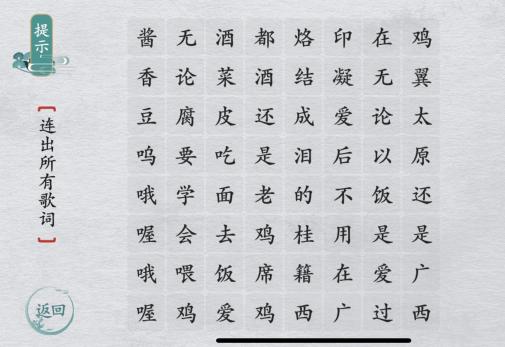 提示
连出所有歌词
返回
酱无酒都烙印在鸡
香论菜酒结凝无翼
豆腐皮还成爱论太
呜要吃是泪后以原
哦学面老的不饭还
喔会去鸡桂用是是
哦喂饭席籍在爱广
喔鸡爱鸡西广过西